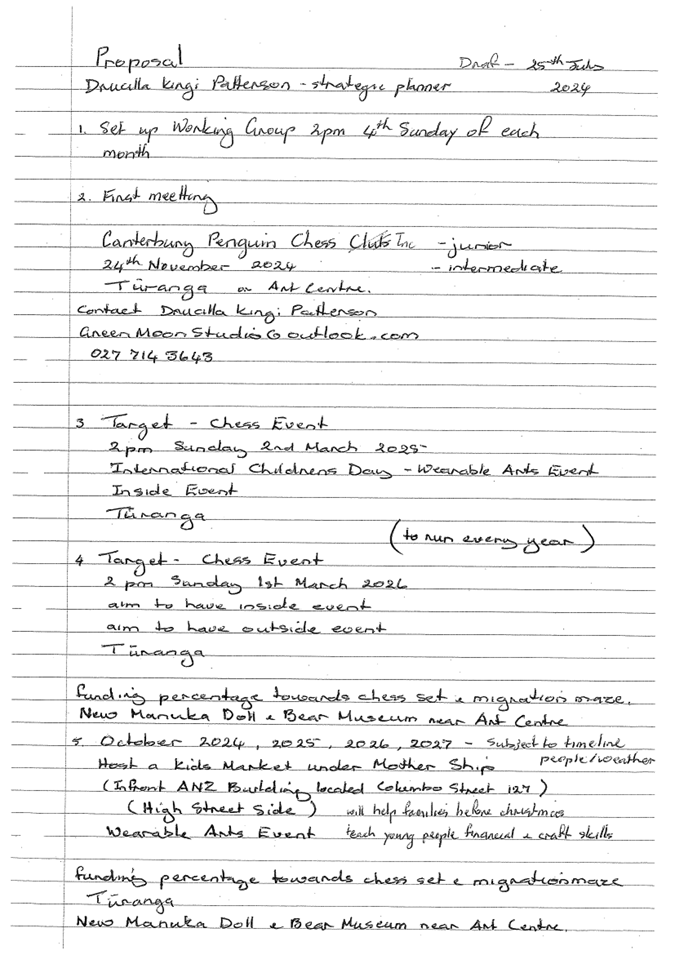 Proposal Draf - 25th July
Drucilla Kingi Patterson - strategic planner 2024
1. Set up Working Group 2pm 4th Sunday of each
month
2. First meetting
Canterbury Penguin Chess Club Inc - junior
24th November 2024 - intermediate
Tūranga or Art Centre.
Contact Drucilla Kingi Patterson
GreenMoonStudio@outlook.com
027 714 3643
3 Target - Chess Event
2pm Sunday 2nd March 2025
International Childrens Day - Wearable Arts Event
Inside Event
Tūranga
(to run every year)
4 Target - Chess Event
2 pm Sunday 1st March 2026
aim to have inside event
aim to have outside event
Tūranga
funding percentage towards chess set & migration maze.
New Manuka Doll & Bear Museum near Art Centre
5. October 2024, 2025, 2026, 2027 - Subject to timeline
Host a Kids Market under Mother Ship people/weather
(Infront ANZ Building located Columbo Street 127)
(High Street Side) will help families before christmas
Wearable Arts Event teach young people financial & craft skills
funding percentage towards chess set & migration maze
Tūranga
New Manuka Doll & Bear Museum near Art Centre.